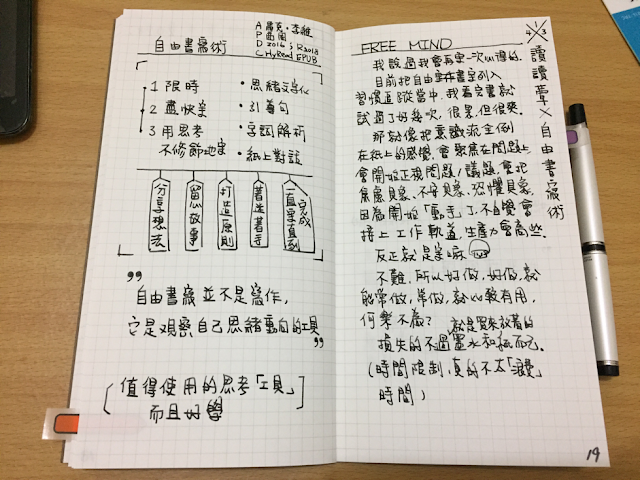 自由書寫術
A 馬克・李維
P 商周
D 2016 ; R 2018
C HyRead EPUB
1 限時
2 盡快寫
3 用思考
不修飾地寫
・思緒文字化
・引導句
・字詞解析
・紙上對談
分享想法
留心故事
打造原則
著迷著手
一直寫直到完成
”自由書寫並不是寫作，
它是觀察自己思緒動向的工具”
(值得使用的思考「工具」
而且好學)
FREE MIND
我說過我會再重一次以導的.
目前把自由書寫列入
習慣追蹤當中，我看完書就
試過了好幾次，很累，但很爽.
那就像把意識流全倒
在紙上的感覺，會聚焦在問題上
會開始正視問題/議題，會把
焦慮具象、不安具象、恐懼具象，
因為開始「動手」了，不自覺會
接上工作軌道，生產力會高些.
反正就是寫嘛
不難，所以好做，好做，就
能常做，常做，就以致有用，
何樂不為？就是買來放著的
損失的不過墨水和紙而已.
(時間限制，真的不太「浪費」
時間)
4 1/3
讀讀蕈×自由書寫術
19